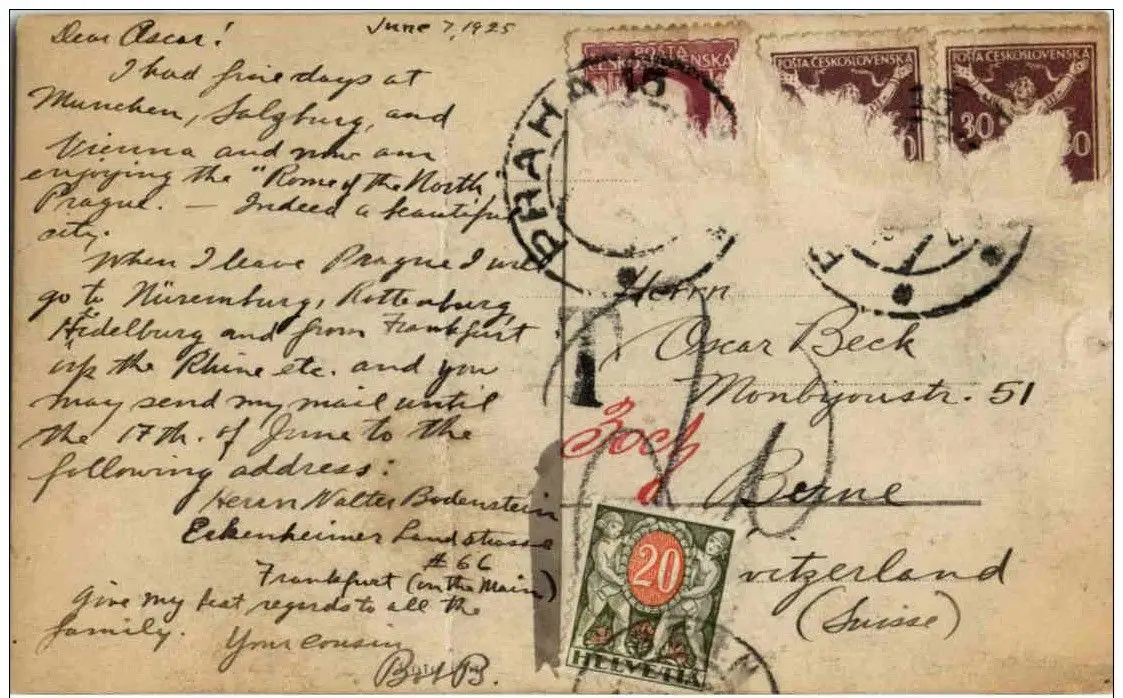 June 7, 1925
Dear Oscar!
I had fine days at
Munchen, Salzburg, and
Vienna and now am
enjoying the "Rome of the North,"
Prague. — Indeed a beautiful
city.
When I leave Prague I will
go to Nüremburg, Rottenburg,
Hidelburg and from Frankfurt
up the Rhine etc. and you
may send my mail until
the 17th. of June to the
following address:
Herrn Walter Bodenstein
Eckenheimer Landstrasse
# 66
Frankfurt (on the Main)
Give my best regards to all the
family.
Your cousin
B.
POSTA
ČESKOSLOVENSKÁ
POŠTA ČESKOSLOVENSKÁ
0
POŠTA ČESKOSLOVENSKÁ
30 0
PRAHA 15
Herrn
Oscar Beck
Monbijoustr. 51
Berne
vitzerland
(Suisse)
T
20
HELVETIA